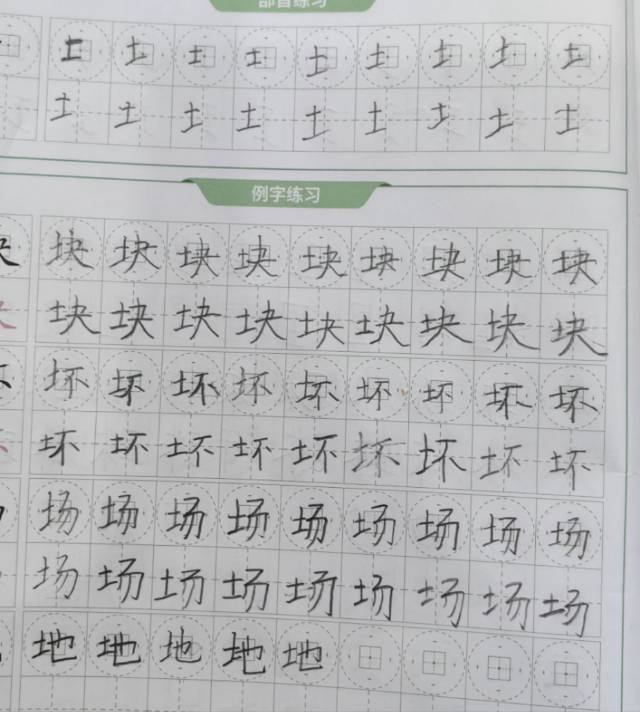 部首练习
土 土 土 土 土 土 土 土 土
土 土 土 土 土 土 土 土 土
例字练习
块 块 块 块 块 块 块 块 块
块 块 块 块 块 块 块 块 块
坏 坏 坏 坏 坏 坏 坏 坏 坏
坏 坏 坏 坏 坏 坏 坏 坏 坏
场 场 场 场 场 场 场 场 场
场 场 场 场 场 场 场 场 场
地 地 地 地 地